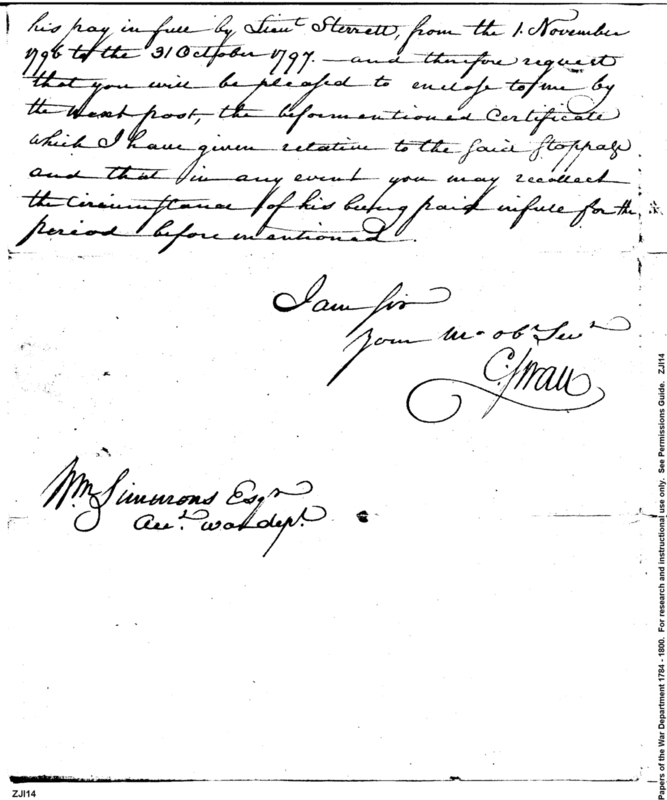 his pay in full by Lieut Sterrett, from the 1. November
1796 to the 31 October 1797. — and therefore request
that you will be pleased to enclose to me by
the next post, the beformentioned Certificate
which I have given relative to the said Stoppage
and that in any event you may recollect
the Circumstance of his being paid in full for the
period before mentioned.
I am Sir
your Mo obt Servt
C. Swan
Wm Simmons Esqr
Acct. War dept.
ZJI14
Papers of the War Department 1784 - 1800. For research and instructional use only. See Permissions Guide. ZJI14